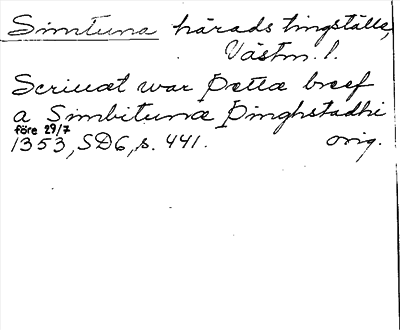 Simtuna härads tingställe,
Västm. l.
Scriuat war þettæ breef
a Simbitunæ þinghstadhi
före 29/7
1353, SD6, s. 441. orig.